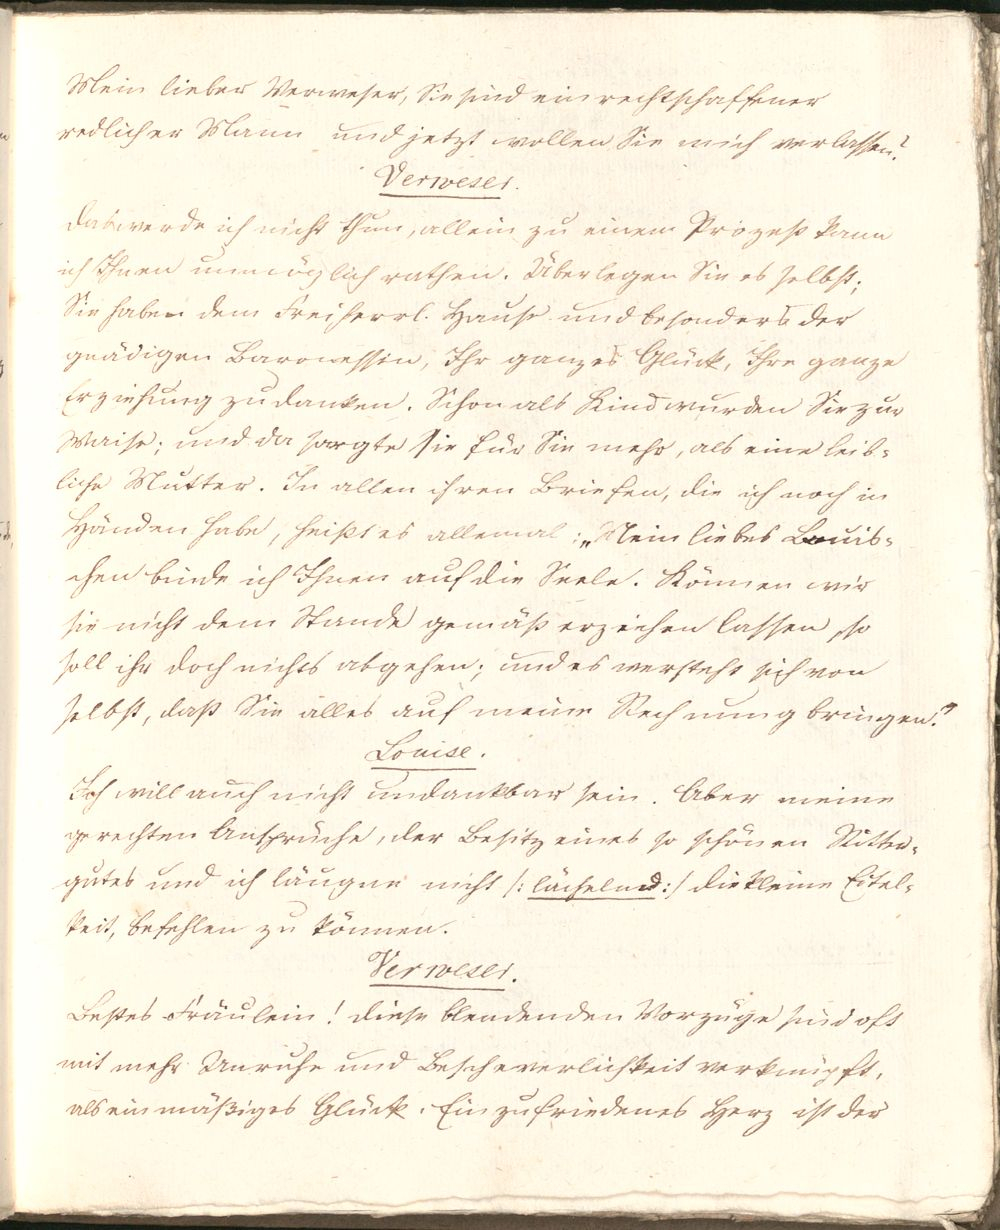 Mein lieber Verweser, Sie sind ein rechtschaffener
redlicher Mann und jetzt wollen Sie mich verlassen?
Verweser.
Das werde ich nicht thun, allein zu einem Prozeß kann
ich Ihnen unmöglich rathen. Überlegen Sie es selbst;
Sie haben dem Freiherrl. Hause und besonders der
gnädigen Baronessin, Ihr ganzes Glück, Ihre ganze
Erziehung zu danken. Schon als Kind wurden Sie zur
Waise; und da sorgte sie für Sie mehr, als eine leib-
liche Mutter. In allen ihren Briefen, die ich noch in
Händen habe, heißt es allemal: „Mein liebes Louis-
chen binde ich Ihnen auf die Seele. Können wir
sie nicht dem Stande gemäß erziehen lassen, so
soll ihr doch nichts abgehen; und es versteht sich von
selbst, daß Sie alles auf meine Rechnung bringen."
Louise.
Ich will auch nicht undankbar sein. Aber meine
gerechten Ansprüche, der Besitz eines so schönen Ritter-
gutes und ich läugne nicht /: lächelnd :/ die kleine Eitel-
keit, befehlen zu können.
Verweser.
Bestes Fräulein! diese blendenden Vorzüge sind oft
mit mehr Unruhe und Beschwerlichkeit verknüpft,
als ein mäßiges Glück. Ein zufriedenes Herz ist der